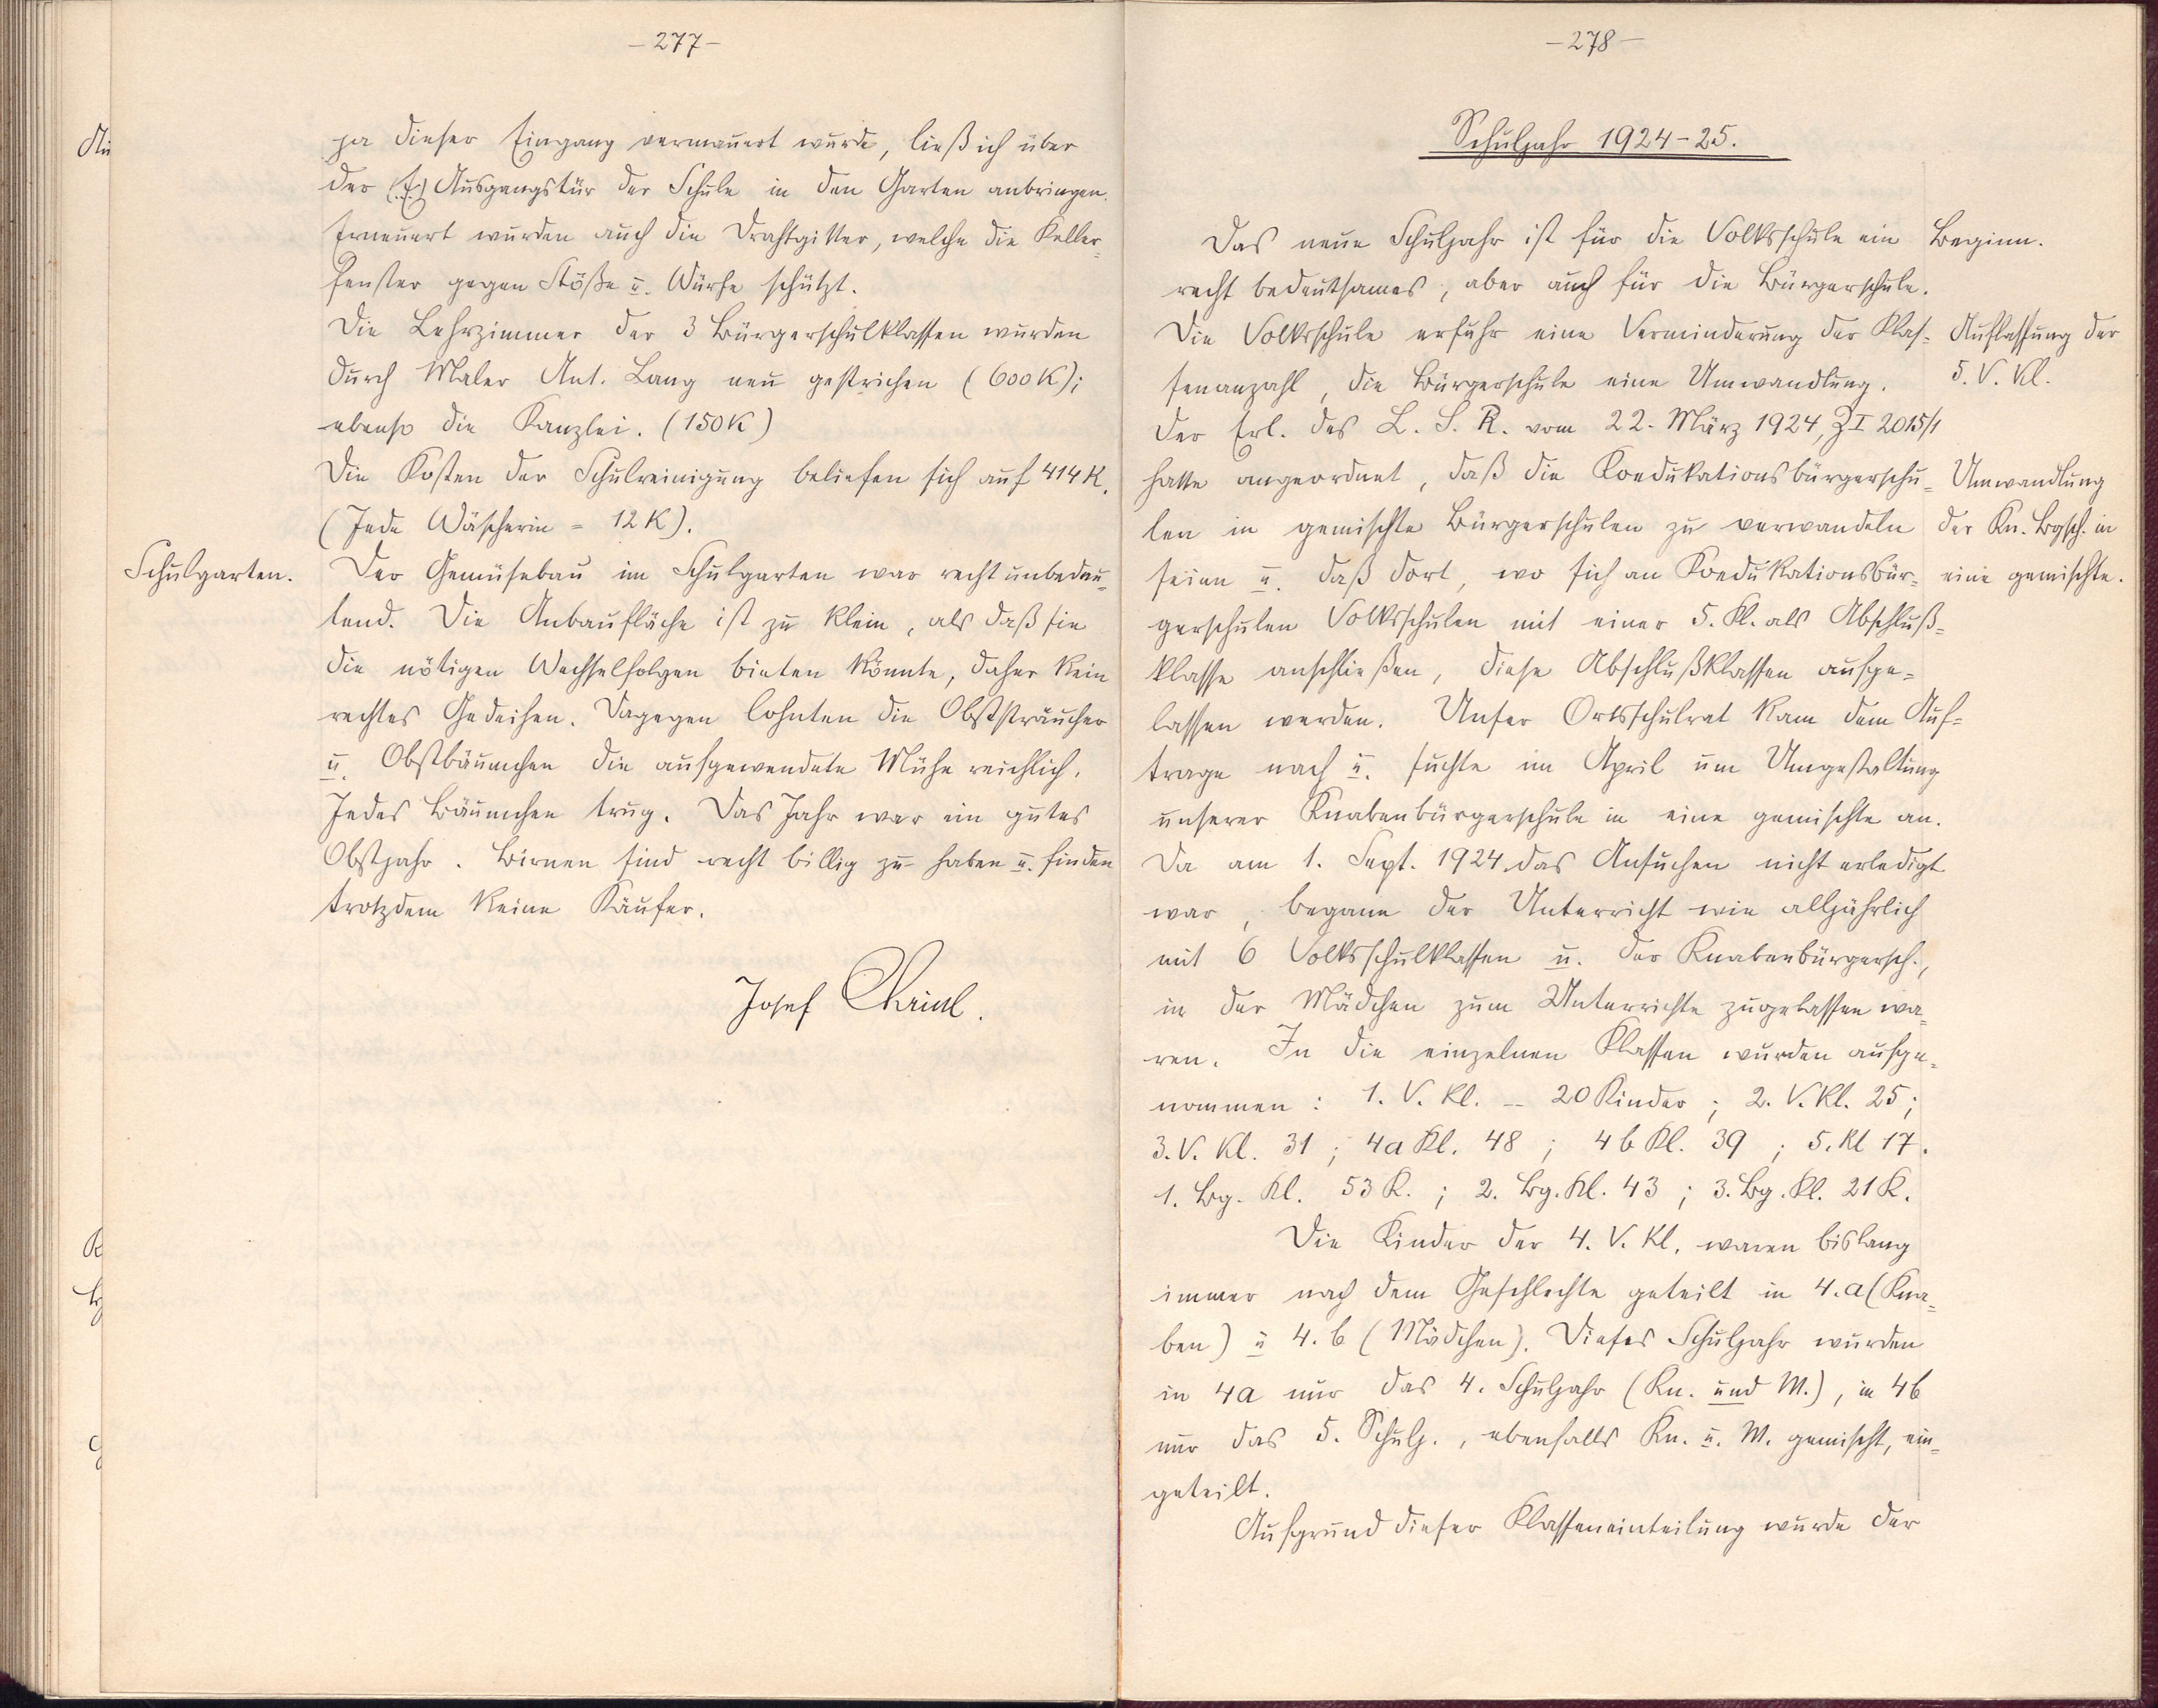 - 277 -
ja dieser Eingang vermauert wurde, ließ ich über
der (E.) Ausgangstür der Schule in den Garten anbringen.
Erneuert wurden auch die Drahtgitter, welche die Keller=
fenster gegen Stöße u. Würfe schützt.
Die Lehrzimmer der 3 Bürgerschulklassen wurden
durch Maler Ant. Lang neu gestrichen (600 K);
ebenso die Kanzlei. (150 K)
Die Kosten der Schulreinigung beliefen sich auf 414 K.
(Jede Wäscherin = 12 K).
Schulgarten.
Der Gemüsebau im Schulgarten war recht unbedeu=
tend. Die Anbaufläche ist zu klein, als daß sie
die nötigen Wechselfolgen bieten könnte, daher kein
rechtes Gedeihen. Dagegen lohnten die Obststräucher
u. Obstbäumchen die aufgewendete Mühe reichlich.
Jedes Bäumchen trug. Das Jahr war ein gutes
Obstjahr. Birnen sind recht billig zu haben u. finden
trotzdem keine Käufer.
Josef
- 278 -
Schuljahr 1924-25.
Das neue Schuljahr ist für die Volksschule ein
Beginn.
recht bedeutsames, aber auch für die Bürgerschule.
Die Volksschule erfuhr eine Verminderung der Klas=
Auflassung der
senanzahl, die Bürgerschule eine Umwandlung.
5. V. Kl.
Der Erl. des L. S. R. vom 22. März 1924, Z I 2015/1
hatte angeordnet, daß die Koedukationsbürgerschu=
Umwandlung
len in gemischte Bürgerschulen zu verwandeln
der Kn. Bgsch. in
seien u. daß dort, wo sich an Koedukationsbür=
eine gemischte.
gerschulen Volksschulen mit einer 5. Kl. als Abschluß=
klasse anschließen, diese Abschlußklassen aufge=
lassen werden. Unser Ortsschulrat kam dem Auf=
trage nach u. suchte im April um Umgestaltung
unserer Knabenbürgerschule in eine gemischte an.
Da am 1. Sept. 1924 das Ansuchen nicht erledigt
war, begann der Unterricht wie alljährlich
mit 6 Volksschulklassen u. der Knabenbürgersch.,
in der Mädchen zum Unterrichte zugelassen wa=
ren. In die einzelnen Klassen wurden aufge=
nommen: 1. V. Kl. - 20 Kinder; 2. V. Kl. 25;
3. V. Kl. 31; 4a Kl. 48; 4b Kl. 39; 5. Kl 17.
1. Bg. Kl. 53 K.; 2. Bg. Kl. 43; 3. Bg. Kl. 21 K.
Die Kinder der 4. V. Kl. waren bislang
immer nach dem Geschlechte geteilt in 4. a (Kna=
ben) u 4. b (Mädchen). Dieses Schuljahr wurden
in 4a nur das 4. Schuljahr (Kn. und M.), in 4b
nur das 5. Schulj., ebenfalls Kn. u. M. gemischt, ein=
geteilt.
Aufgrund dieser Klasseneinteilung wurde der